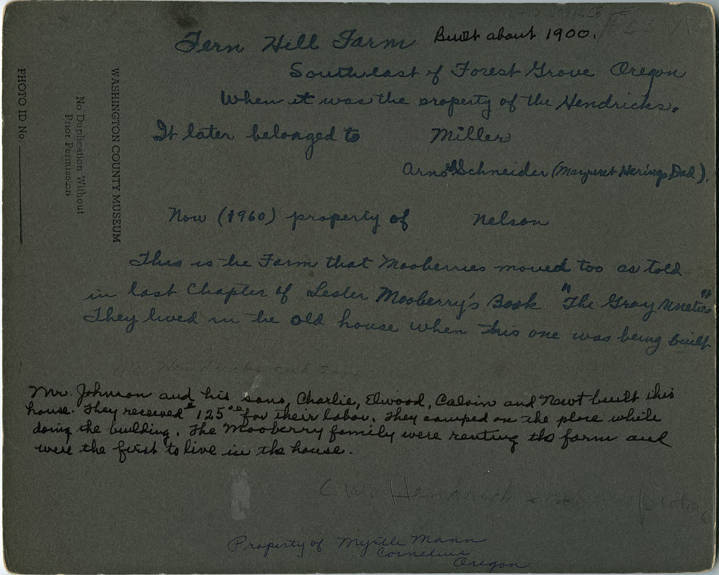 Fern Hill Farm Built about 1900.
Southeast of Forest Grove Oregon
When it was the property of the Hendricks.
It later belonged to Miller
Arno Schneider (Margaret Herings Dad).
Now (1960) property of Nelson
This is the Farm that Mooberries moved too as told
in last Chapter of Lester Mooberry's Book "The Gray Nineties"
They lived in the old house when this one was being built
Mr. Johnson and his sons, Charlie, Elwood, Calvin and Newt built this
house. They received $125⁰⁰ for their labor. They camped on the place while
doing the building. The Mooberry family were renting the farm and
were the first to live in the house.
Hendrick
Property of Myrtle Mann
Cornelius
Oregon
WASHINGTON COUNTY MUSEUM
No Duplication Without
Prior Permission
PHOTO ID No.